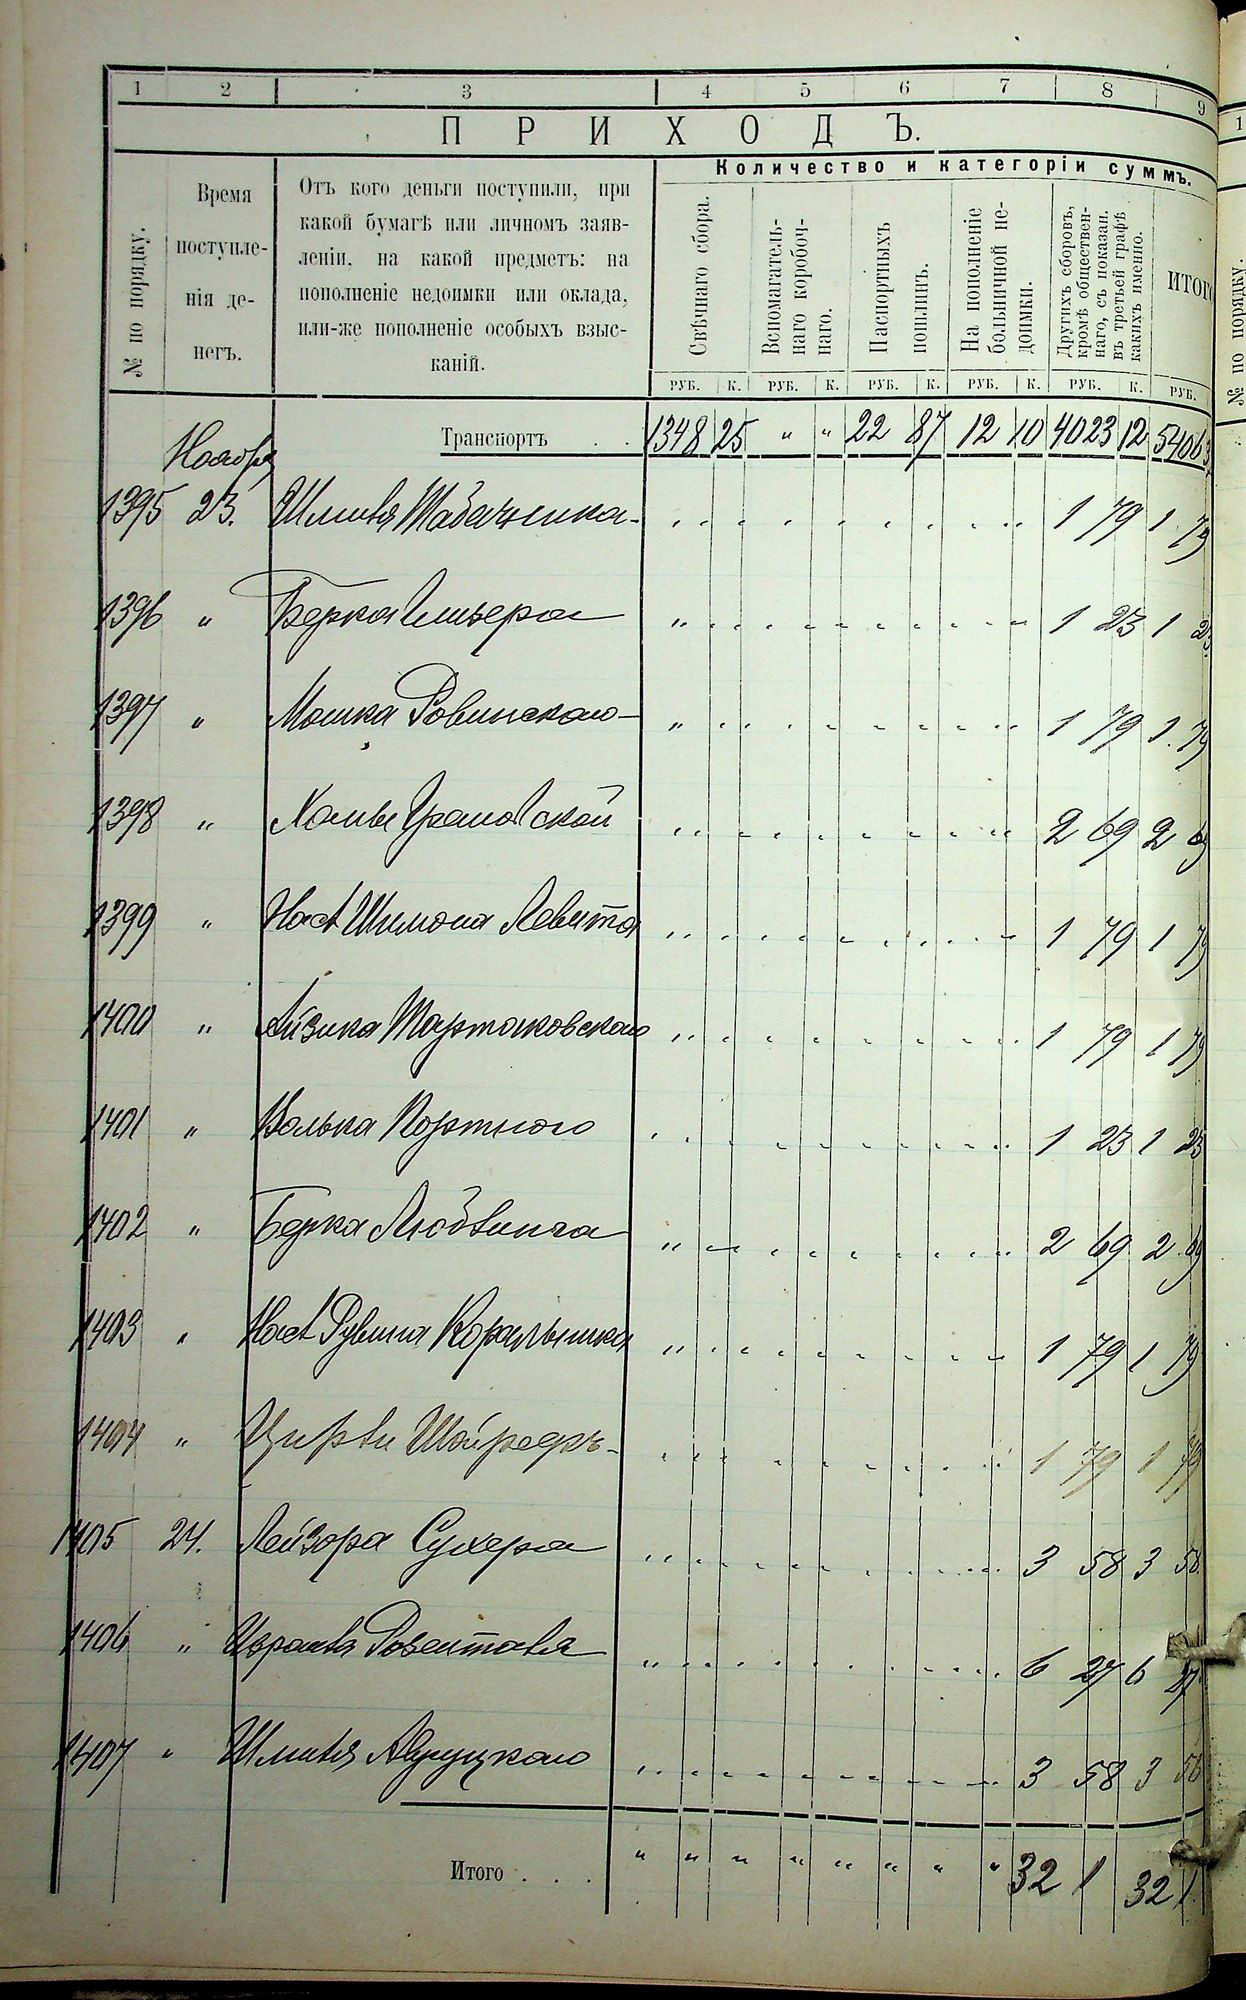 1 2 3 4 5 6 7 8 9
ПРИХОДЪ.
Количество и категоріи суммъ.
№ по порядку.
Время поступле-
нія де-
негъ.
Отъ кого деньги поступили, при
какой бумагѣ или личномъ заяв-
леніи, на какой предметъ: на
пополненіе недоимки или оклада,
или-же пополненіе особыхъ взыс-
каній.
Свѣчнаго сбора.
Вспомагатель-
наго коробоч-
наго.
Паспортныхъ
пошлинъ.
На пополненіе
больничной не-
доимки.
Другихъ сборовъ,
кромѣ обществен-
наго, съ показан.
въ третьей графѣ
какихъ именно.
ИТОГО
РУБ. К. РУБ. К. РУБ. К. РУБ. К. РУБ. К. РУБ.
Транспортъ . . 1348 25 " " 22 87 12 10 4023 12 5406
Ноябр
1395 23. Шмиля Табачника 1 79 1 79
1396 " Берка 1 23 1 23
1397 " Мошка Ровинскаго 1 79 1 79
1398 " Грановской 2 69 2 69
1399 " Наст Шимона Левита 1 79 1 79
1400 " Айзика Тартаковскаго 1 79 1 79
1401 " Волька Портного 1 23 1 23
1402 " Берка 2 69 2 69
1403 " Наст Рувина Коральника 1 79 1 79
1404 " 1 79 1 79
1405 24. Лейзора Сухера 3 58 3 58
1406 " Израиля 6 27 6 27
1407 " Шмиля 3 58 3 58
Итого . . . " " " " " " " " 32 1 32 1